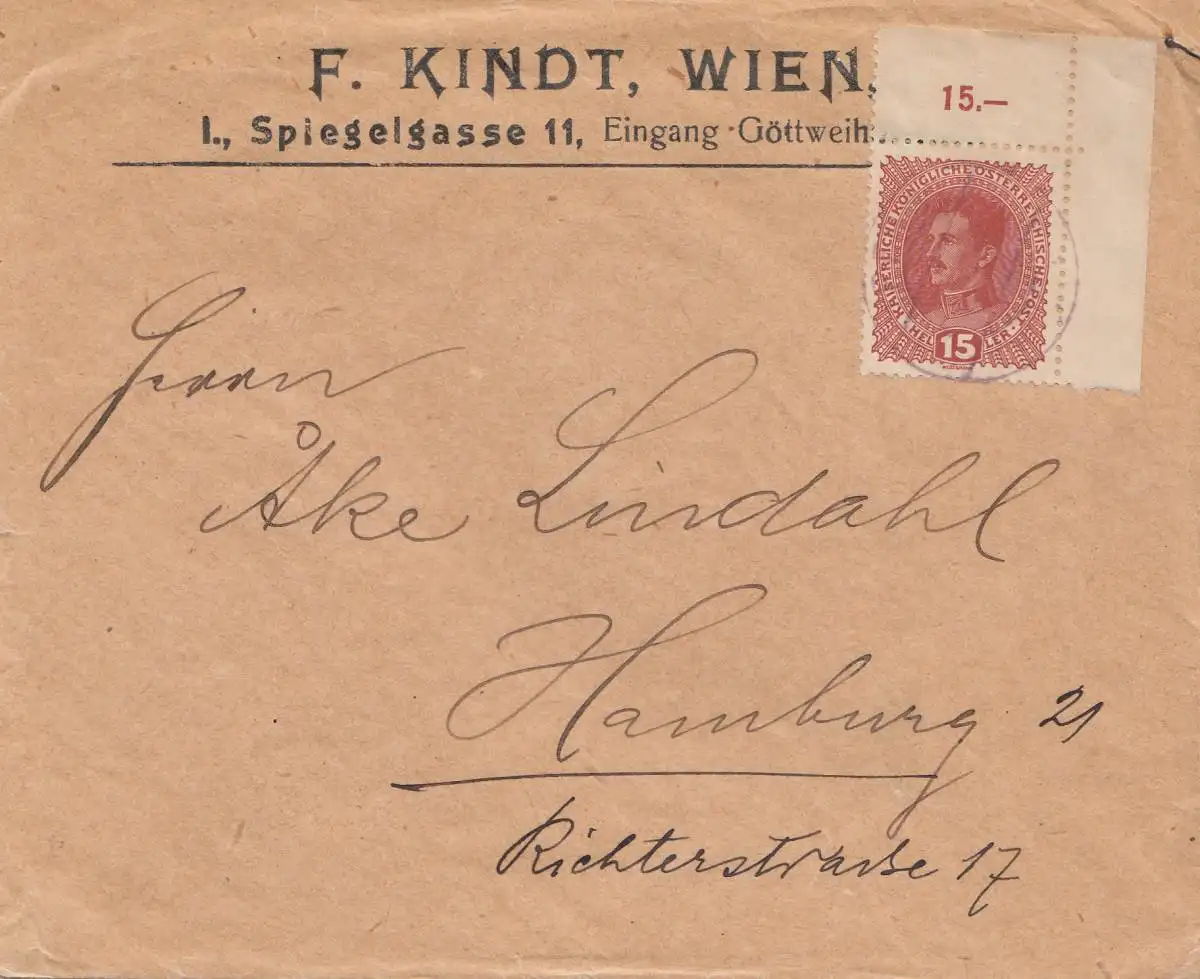 F. KINDT, WIEN,
I., Spiegelgasse 11, Eingang Göttweih
15.—
KAISERLICHE KÖNIGLICHE ÖSTERREICHISCHE POST
HEL LER
15
Herrn
Åke Lindahl
Hamburg 21
Richterstraße 17